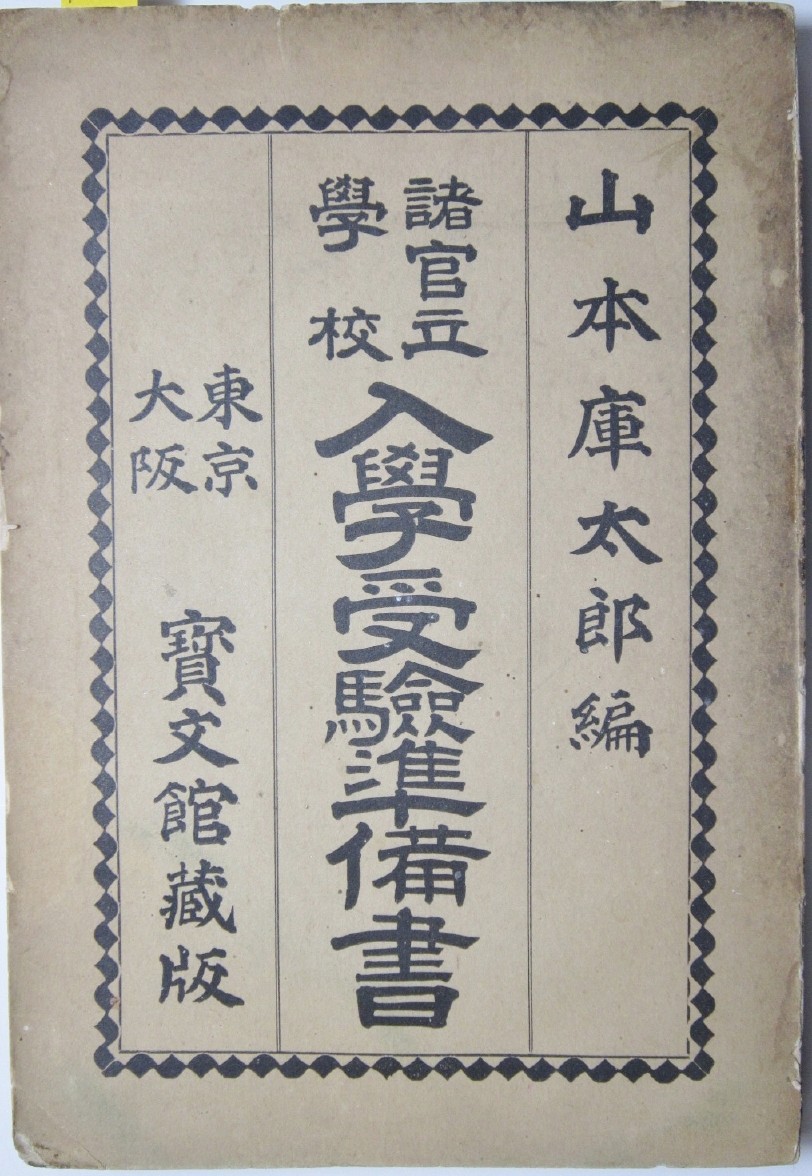 山本庫太郎編
諸官立
學校
入學受驗準備書
東京
大阪
寶文館藏版